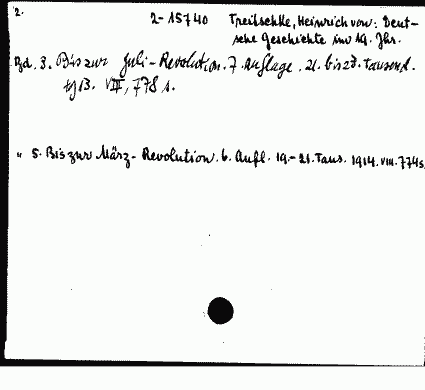 2.
2-15740 Treitschke, Heinrich von: Deut-
sche Geschichte im 19. Jhr.
Bd. 3. Bis zur Juli-Revolution. 7. Auflage. 21. bis 23. Tausend.
1913. VIII, 778 s.
" 5. Bis zur März-Revolution. 6. Aufl. 19.-21. Taus. 1914. VIII. 774 s.